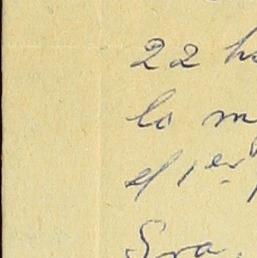 22 h
lo m
el 1er
Sra.